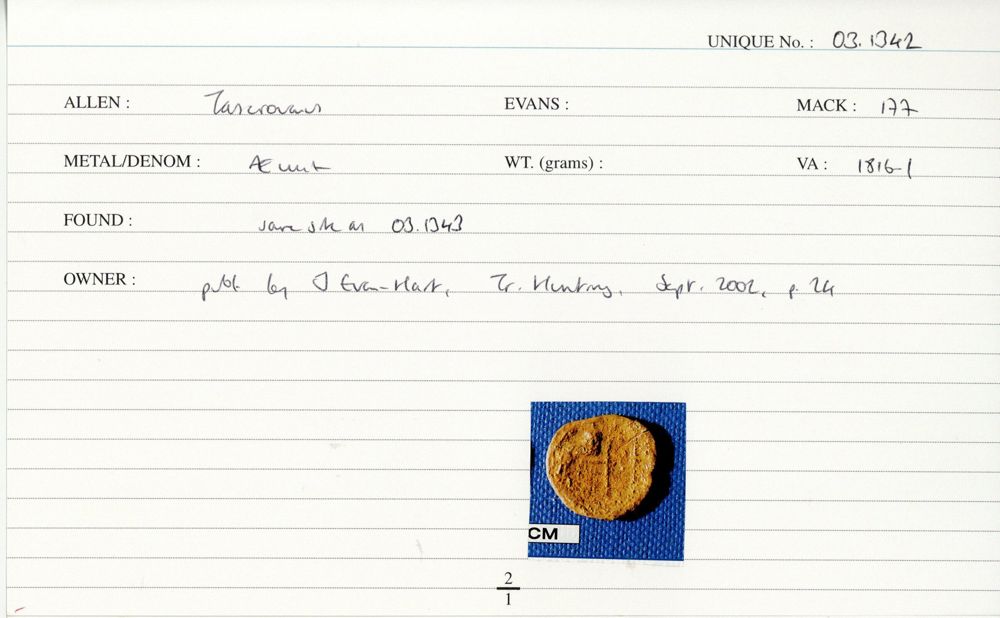 UNIQUE No. : 03.1342
ALLEN : Tasciovanus EVANS : MACK : 177
METAL/DENOM : Æ unit WT. (grams) : VA : 1816-1
FOUND : same site as 03.1343
OWNER : publ. by J Evan-Hart, Tr. Hunting, Sept. 2002, p. 24
CM
2
1